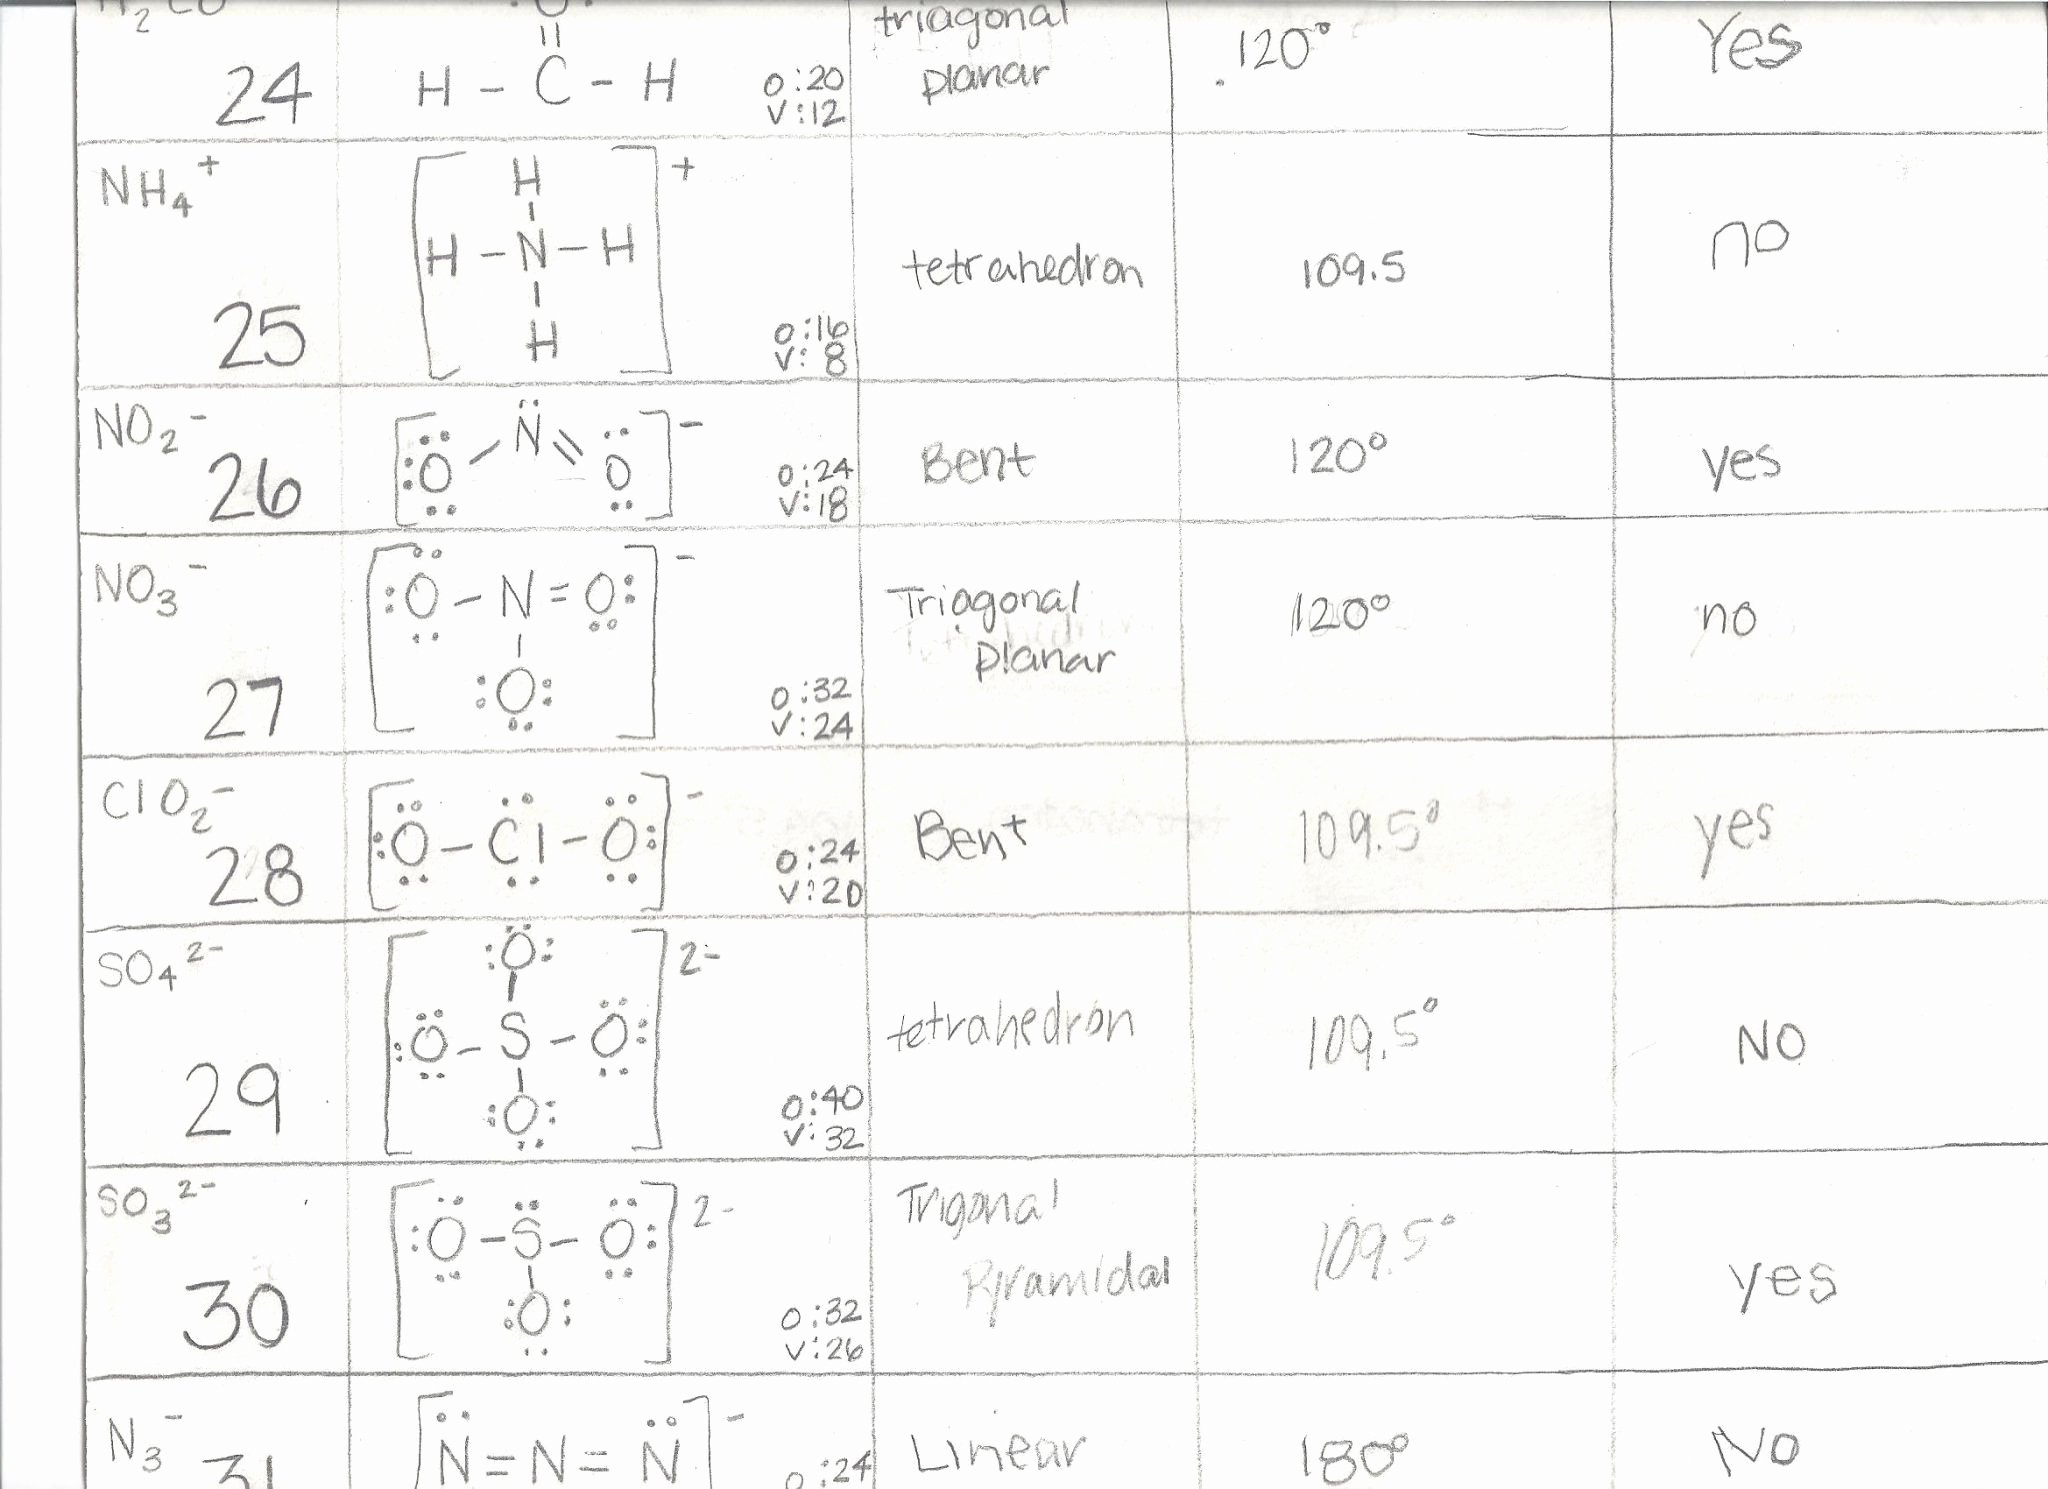 H2CO
24
:O:
H - C - H
O:20
V:12
triagonal
planar
120°
Yes
NH4+
25
H
H - N - H
H
+
O:16
V:8
tetrahedron
109.5
no
NO2-
26
N
O O
-
O:24
V:18
Bent
120°
yes
NO3-
27
:O - N = O:
:O:
-
O:32
V:24
Triagonal
planar
120°
no
ClO2-
28
:O - Cl - O:
-
O:24
V:20
Bent
109.5°
yes
SO4 2-
29
:O:
:O - S - O:
:O:
2-
O:40
V:32
tetrahedron
109.5°
NO
SO3 2-
30
:O - S - O:
:O:
2-
O:32
V:26
Trigonal
Pyramidal
109.5°
yes
N3-
31
N = N = N
-
O:24
Linear
180°
No